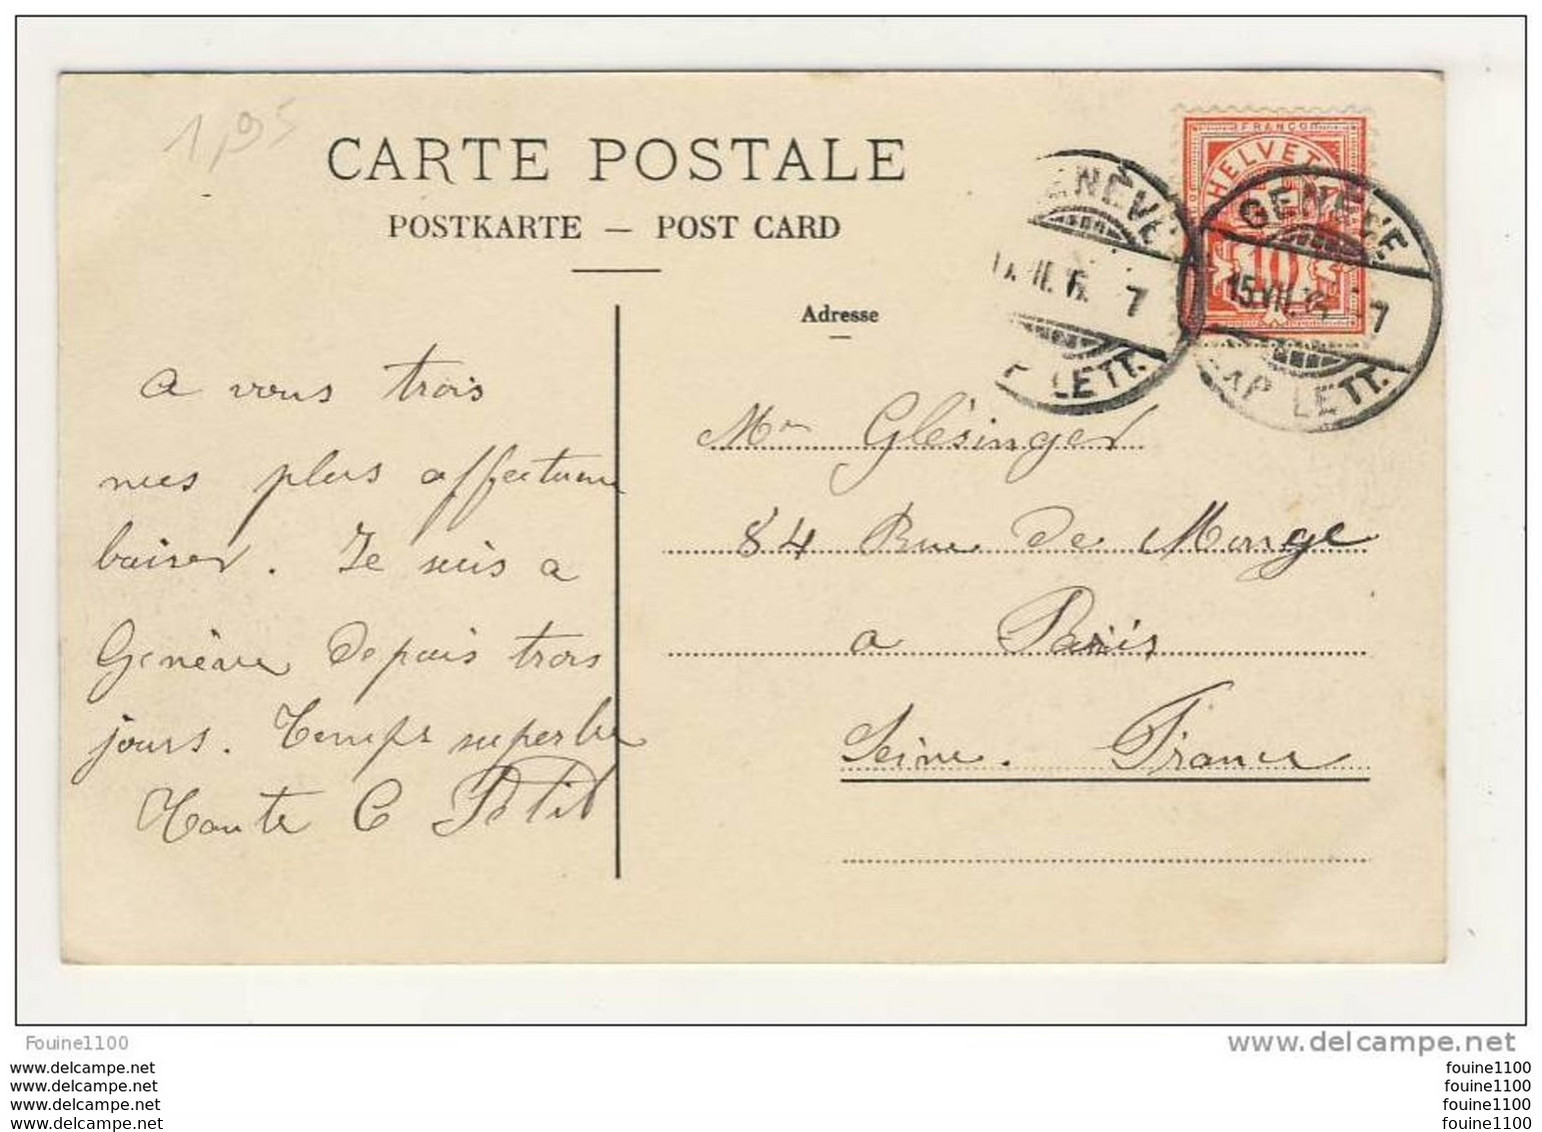 1,95
CARTE POSTALE
POSTKARTE – POST CARD
Adresse
FRANCO
HELVETI
10
GENÈVE
15.VII.
7
LETT.
ENÈVE
7
LETT.
a vous trois
mes plus affectueux
baiser. Je suis a
Genève depuis trois
jours. Temps superbe
Tante C Petit
Mr Glésinger
84 Rue de Monge
a Paris
Seine. France
Fouine1100
www.delcampe.net
www.delcampe.net
www.delcampe.net
www.delcampe.net
www.delcampe.net
fouine1100
fouine1100
fouine1100
fouine1100